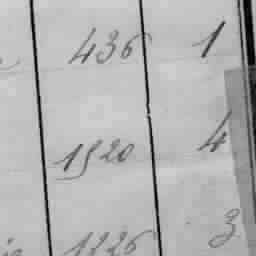 436 1
1920 4
1226 3